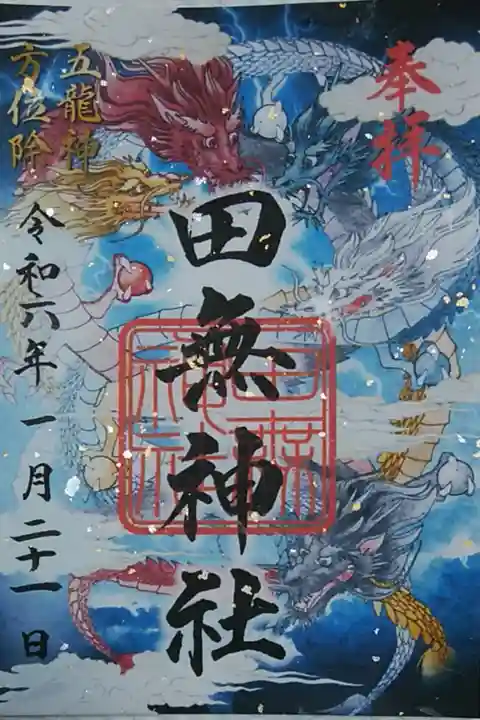 奉拝
田無神社
田無神社
五龍神
方位除
令和六年一月二十一日